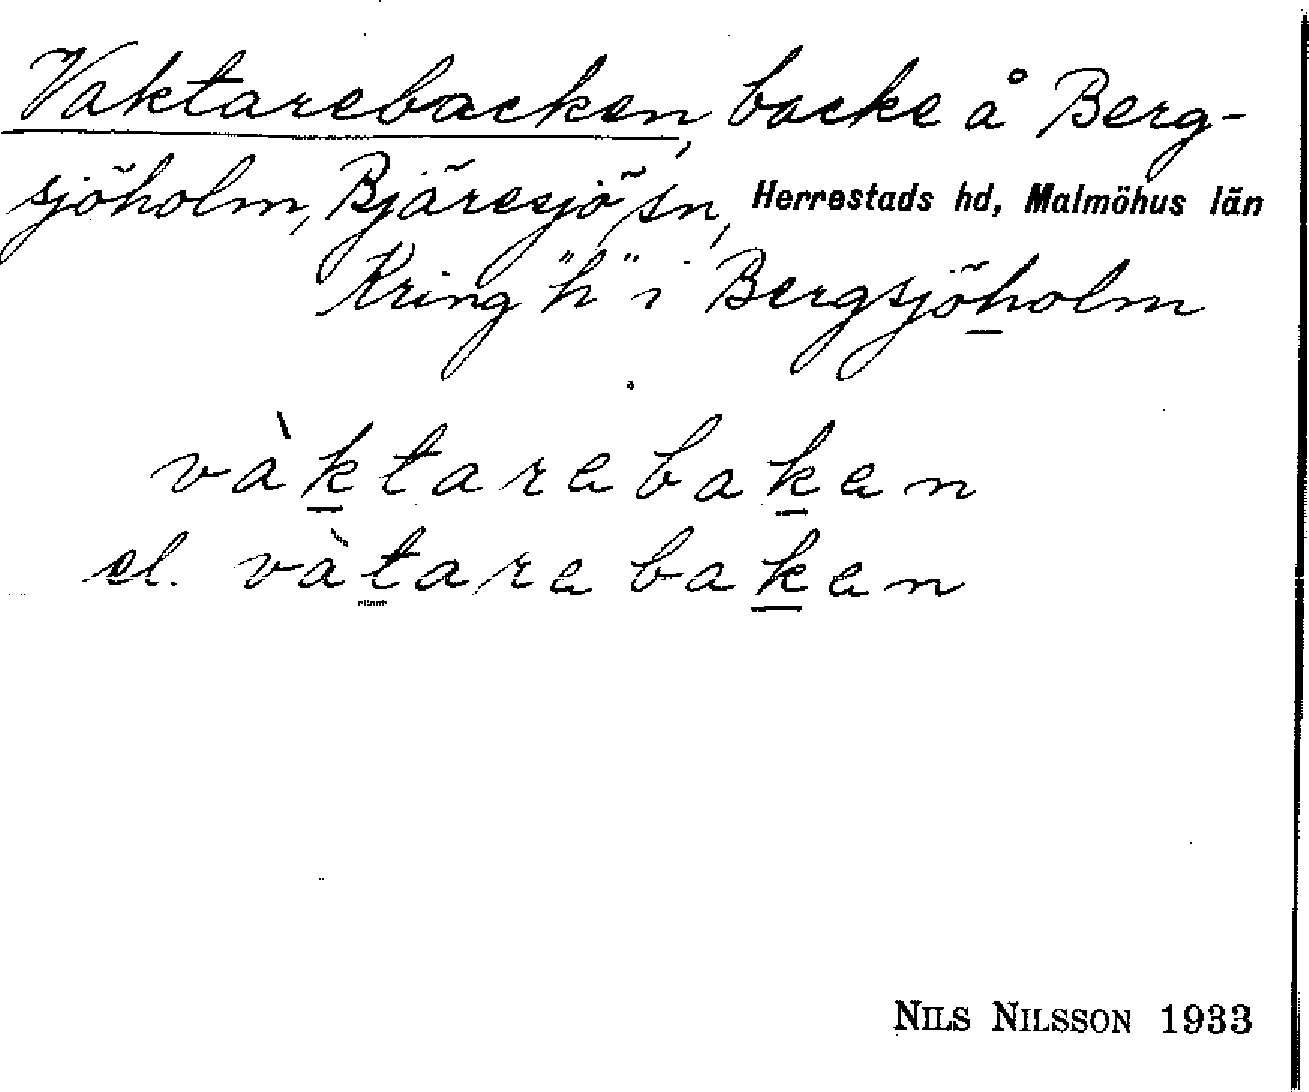 Vaktarebacken, backe å Berg-
sjöholm, Bjäresjö sn, Herrestads hd, Malmöhus län
Kring "h" i Bergsjöholm
vàktarebaken
el. vàtarebaken
NILS NILSSON 1933